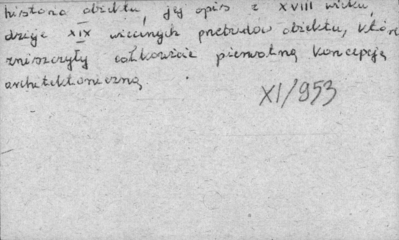 historia obiektu, jej opis z XVIII wieku,
dzieje XIX wiecznych przebudów obiektu, które
zniszczyły całkowicie pierwotną koncepcję
architektoniczną
XI/953